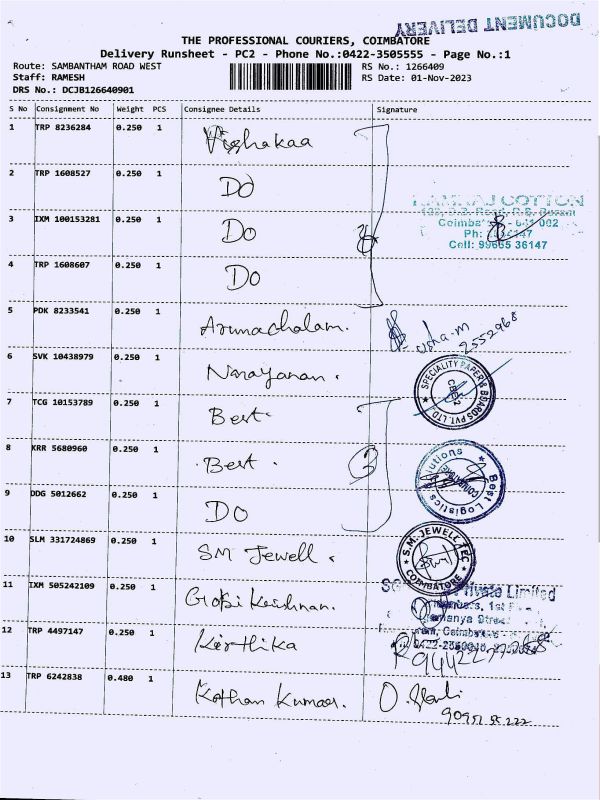 DOCUMENT DELIVERY
THE PROFESSIONAL COURIERS, COIMBATORE
Delivery Runsheet - PC2 - Phone No.:0422-3505555 - Page No.:1
Route: SAMBANTHAM ROAD WEST RS No.: 1266409
Staff: RAMESH RS Date: 01-Nov-2023
DRS No.: DCJB126640901
S No Consignment No Weight PCS Consignee Details Signature
1 TRP 8236284 0.250 1
2 TRP 1608527 0.250 1 Do
RAMRAJ COTTON
3 IXM 100153281 0.250 1 Do
Cell: 99665 36147
4 TRP 1608607 0.250 1 Do
5 PDK 8233541 0.250 1 Arunachalam. usha-m
2552968
6 SVK 10438979 0.250 1 Narayanan.
SPECIALITY PAPER & BOARDS PVT. LTD.
CBE-2
7 TCG 10153789 0.250 1 Best.
8 KRR 5680960 0.250 1 Best. 3
Best Logistics Solutions
COIMBATORE
9 DDG 5012662 0.250 1 Do
10 SLM 331724869 0.250 1 SM Jewell.
S.M. JEWELL TEC
COIMBATORE
11 IXM 505242109 0.250 1 Gobi Krishnan.
Private Limited
12 TRP 4497147 0.250 1 Kirthika
13 TRP 6242838 0.480 1 Kathan Kumaar.